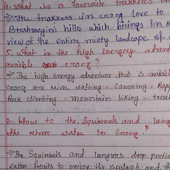 What is a favourite trekkers
The trekkers in coorg love to
Brahmagiri hills which brings on a
view of the entire misty landscape of
5. What is the high energy adven
available coorg?
The high energy adventure that is availa
coorg are river rafting, canoeing, Rapp
Rock climbing, mountain biking, trek
6. How to the squirrels and lang
the river water in coorg?
The squirrels and langurs drop partia
eaten fruits to enjoy the